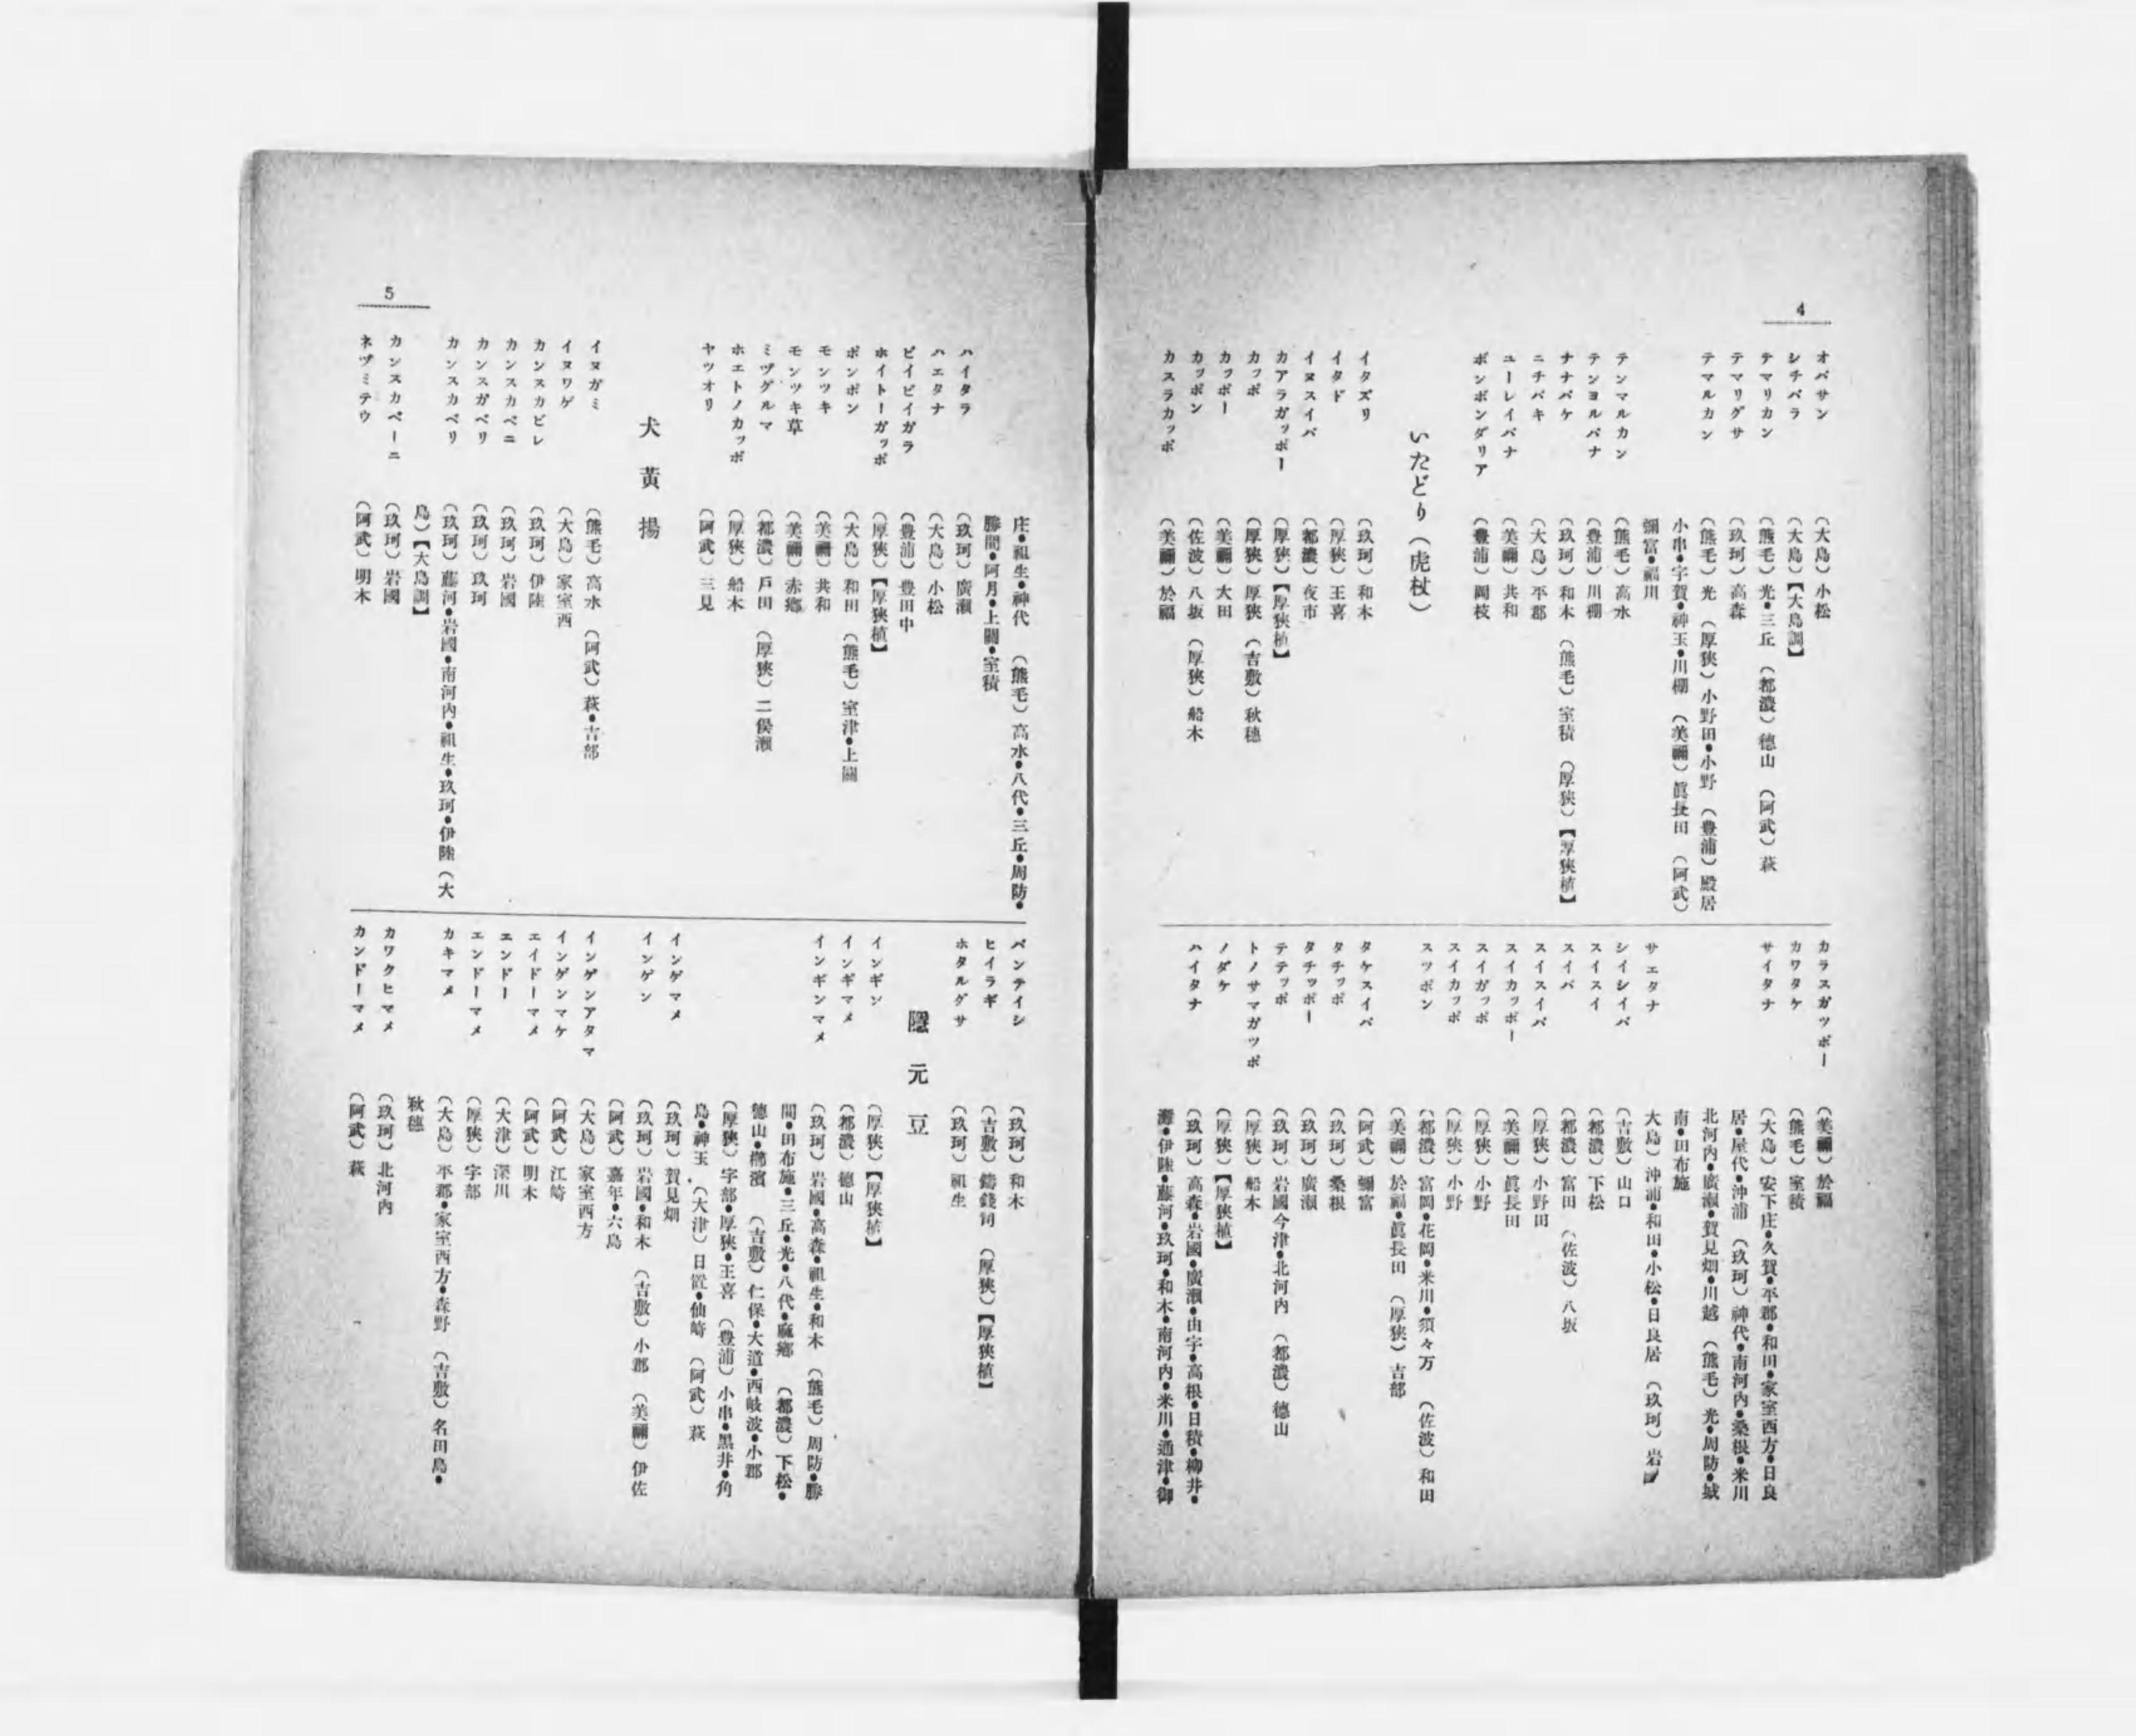 4
オバサン （大島）小松
シチバラ （大島）【大島調】
テマリカン （熊毛）光・三丘 （都濃）德山 （阿武）萩
テマリグサ （玖珂）高森
テマルカン （熊毛）光 （厚狹）小野田・小野 （豊浦）殿居
小串・宇賀・神玉・川棚 （美禰）眞長田 （阿武）
彌富・福川
テンマルカン （熊毛）高水
テンヨルバナ （豊浦）川棚
ナナバケ （玖珂）和木 （熊毛）室積 （厚狹）【厚狹植】
ニチバキ （大島）平郡
ユーレイバナ （美禰）共和
ボンボンダリア （豊浦）岡枝
いたどり（虎杖）
イタズリ （玖珂）和木
イタド （厚狹）王喜
イヌスイバ （都濃）夜市
カアラガッポー （厚狹）【厚狹植】
カッポ （厚狹）厚狹 （吉敷）秋穗
カッポー （美禰）大田
カッポン （佐波）八坂 （厚狹）船木
カスラカッポ （美禰）於福
カラスガツポー （美禰）於福
カワタケ （熊毛）室積
サイタナ （大島）安下庄・久賀・平郡・和田・家室西方・日良
居・屋代・沖浦 （玖珂）神代・南河内・桑根・米川
北河内・廣瀬・賀見畑・川越 （熊毛）光・周防・城
南・田布施
サエタナ 大島）沖浦・和田・小松・日良居 （玖珂）岩國
シイシイバ （吉敷）山口
スイスイ （都濃）下松
スイバ （都濃）富田 （佐波）八坂
スイスイバ （厚狹）小野田
スイカッポー （美禰）眞長田
スイガッポ （厚狹）小野
スイカッポ （厚狹）小野
スッポン （都濃）富岡・花岡・米川・須々万 （佐波）和田
（美禰）於福・眞長田 （厚狹）吉部
タケスイバ （阿武）彌富
タチッポ （玖珂）桑根
タチッポー （玖珂）廣瀬
テテッポ （玖珂）岩國今津・北河内 （都濃）德山
トノサマガツポ （厚狹）船木
ノダケ （厚狹）【厚狹植】
ハイタナ （玖珂）高森・岩國・廣瀬・由宇・高根・日積・柳井・
灘・伊陸・藤河・玖珂・和木・南河内・米川・通津・御
5
庄・祖生・神代 （熊毛）高水・八代・三丘・周防・
勝間・阿月・上關・室積
ハイタラ （玖珂）廣瀬
ハエタナ （大島）小松
ピイピイガラ （豊浦）豊田中
ホイトーガッポ （厚狹）【厚狹植】
ポンポン （大島）和田 （熊毛）室津・上關
モンツキ （美禰）共和
モンツキ草 （美禰）赤鄕
ミヅグルマ （都濃）戸田 （厚狹）二俣瀬
ホエトノカッポ （厚狹）船木
ヤツオリ （阿武）三見
犬黃揚
イヌガミ （熊毛）高水 （阿武）萩・吉部
イヌワゲ （大島）家室西
カンスカビレ （玖珂）伊陸
カンスカベニ （玖珂）岩國
カンスガベリ （玖珂）玖珂
カンスカベリ （玖珂）藤河・岩國・南河内・祖生・玖珂・伊陸（大
島）【大島調】
カンスカベーニ （玖珂）岩國
ネヅミテウ （阿武）明木
バンテイシ （玖珂）和木
ヒイラギ （吉敷）鑄錢司 （厚狹）【厚狹植】
ホタルグサ （玖珂）祖生
隱元豆
インギン （厚狹）【厚狹植】
インギマメ （都濃）德山
インギンマメ （玖珂）岩國・高森・祖生・和木 （熊毛）周防・勝
間・田布施・三丘・光・八代・麻鄕 （都濃）下松・
德山・櫛濱 （吉敷）仁保・大道・西岐波・小郡
（厚狹）宇部・厚狹・王喜 （豊浦）小串・黒井・角
島・神玉 （大津）日置・仙崎 （阿武）萩
インゲマメ （玖珂）賀見畑
インゲン （玖珂）岩國・和木 （吉敷）小郡 （美禰）伊佐
（阿武）嘉年・六島
インゲンアタマ （大島）家室西方
インゲンマケ （阿武）江崎
エイドーマメ （阿武）明木
エンドー （大津）深川
エンドーマメ （厚狹）宇部
カキマメ （大島）平郡・家室西方・森野 （吉敷）名田島・
秋穗
カワクヒマメ （玖珂）北河内
カンドーマメ （阿武）萩